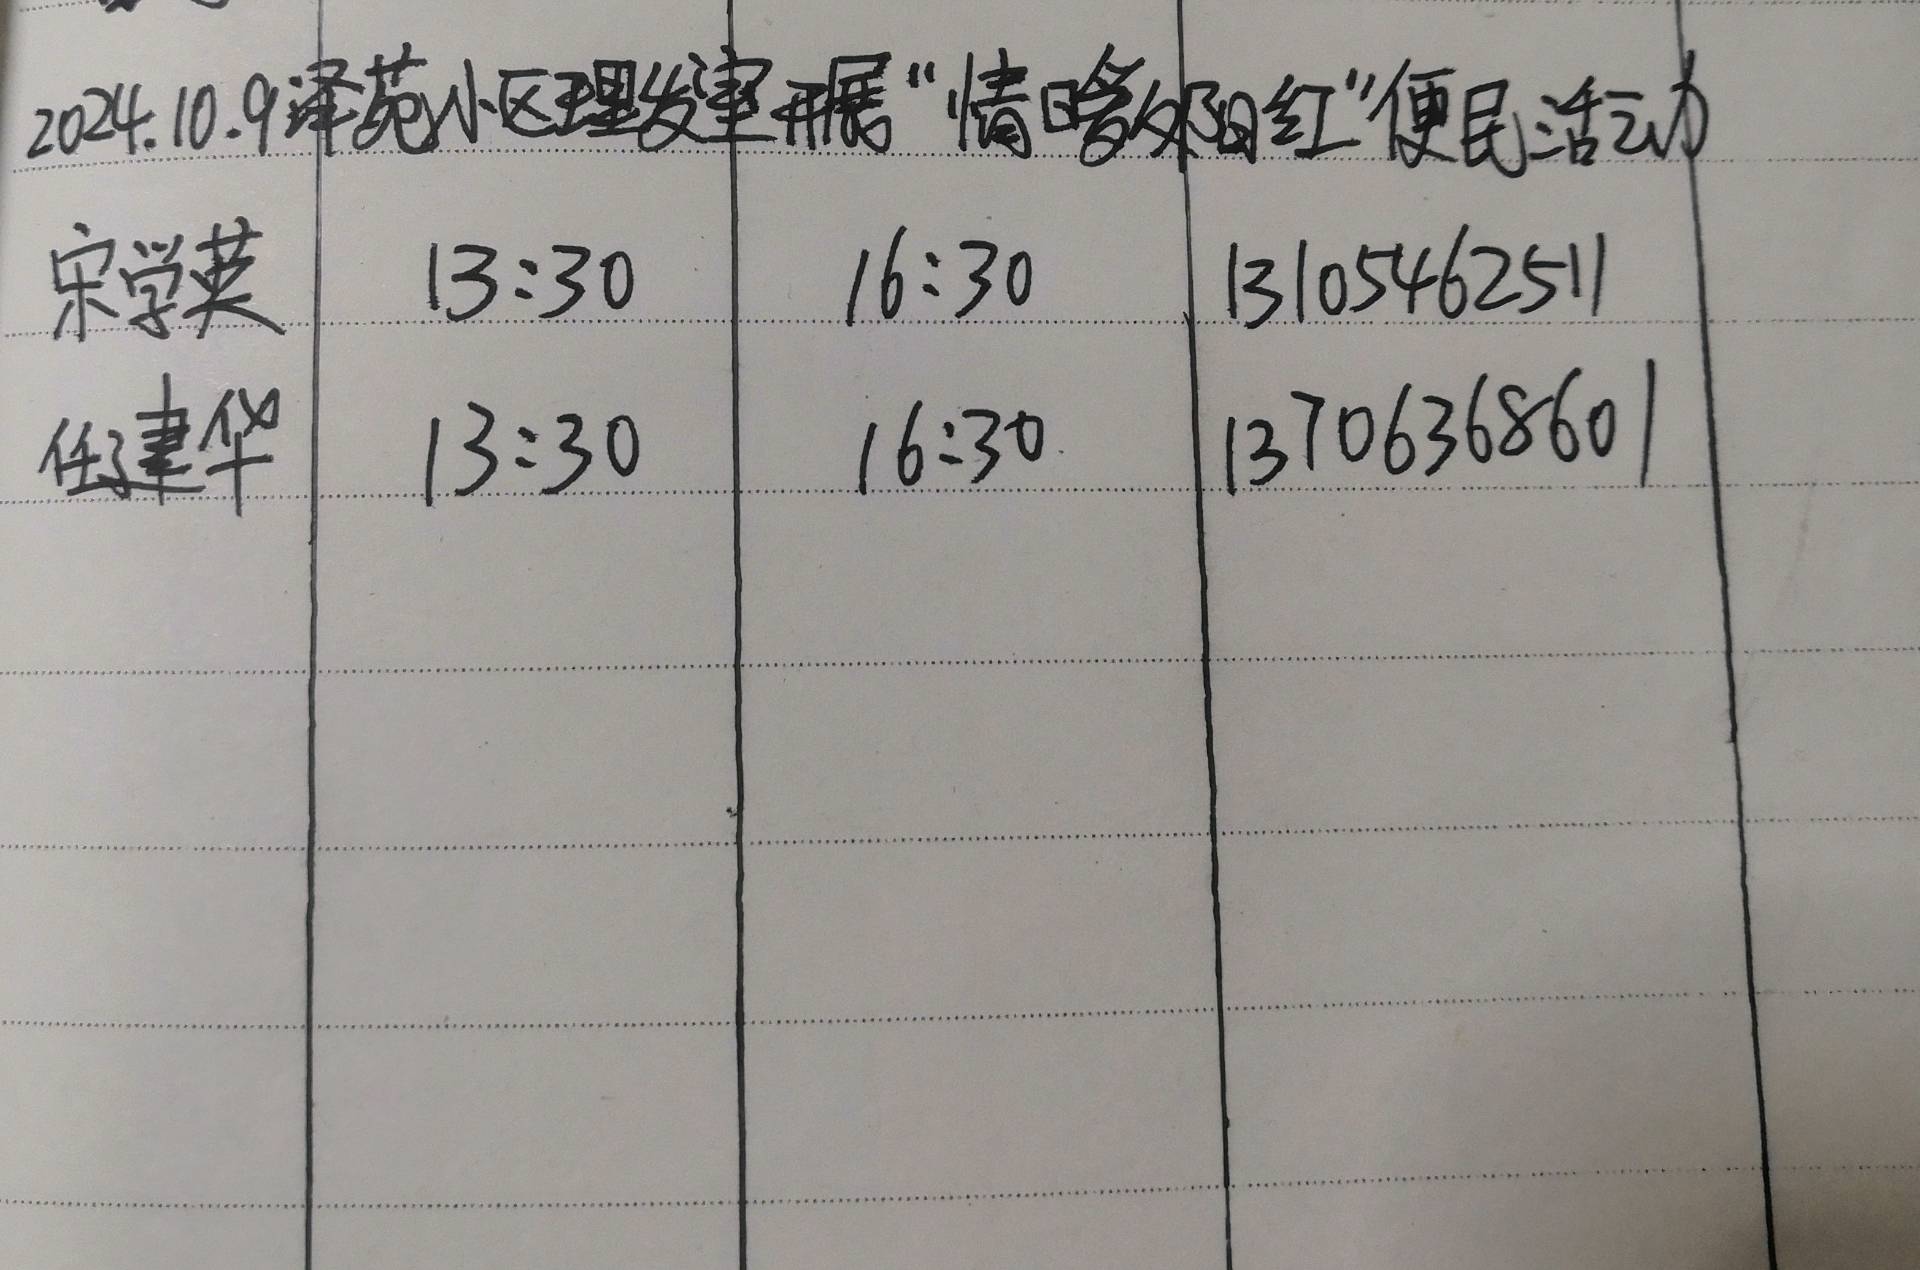 2024.10.9泽苑小区理发室开展“情暖夕阳红”便民活动
宋学英 13:30 16:30 13105462511
任建华 13:30 16:30 13706368601